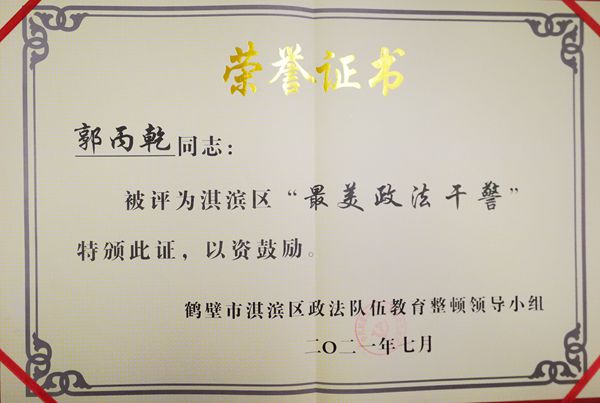 荣誉证书
郭丙乾同志：
被评为淇滨区“最美政法干警”
特颁此证，以资鼓励。
鹤壁市淇滨区政法队伍教育整顿领导小组
二〇二一年七月